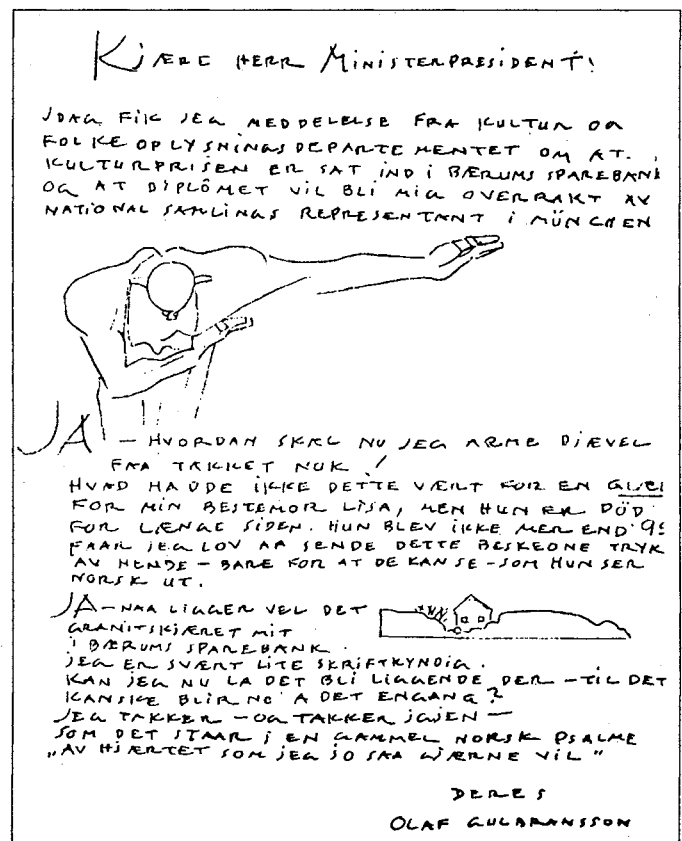 KJÆRE HERR MINISTERPRESIDENT!
IDAG FIK JEG MEDDELELSE FRA KULTUR OG
FOLKEOPLYSNINGSDEPARTEMENTET OM AT
KULTURPRISEN ER SAT IND I BÆRUMS SPAREBANK
OG AT DIPLÔMET VIL BLI MIG OVERRAKT AV
NATIONAL SAMLINGS REPRESENTANT I MÜNCHEN
JA – HVORDAN SKAL NU JEG ARME DJÆVEL
FAA TAKKET NOK!
HVAD HADDE IKKE DETTE VÆRT FOR EN
FOR MIN BESTEMOR LISA, MEN HUN ER DÖD
FOR LÆNGE SIDEN. HUN BLEV IKKE MER END
FAAR JEG LOV AA SENDE DETTE BESKEDNE TRYK
AV HENDE – BARE FOR AT DE KAN SE – SOM HUN SER
NORSK UT.
JA – NAA LIGGER VEL DET
GRANITSKJÆRET MIT
I BÆRUMS SPAREBANK.
JEG ER SVÆRT LITE SKRIFTKYNDIG.
KAN JEG NU LA DET BLI LIGGENDE DER – TIL DET
KANSKE BLIR NO' A DET ENGANG?
JEG TAKKER – OG TAKKER IGJEN –
SOM DET STAAR I EN GAMMEL NORSK PSALME
„AV HJÆRTET SOM JEG JO SAA GJÆRNE VIL"
DERES
OLAF GULBRANSSON